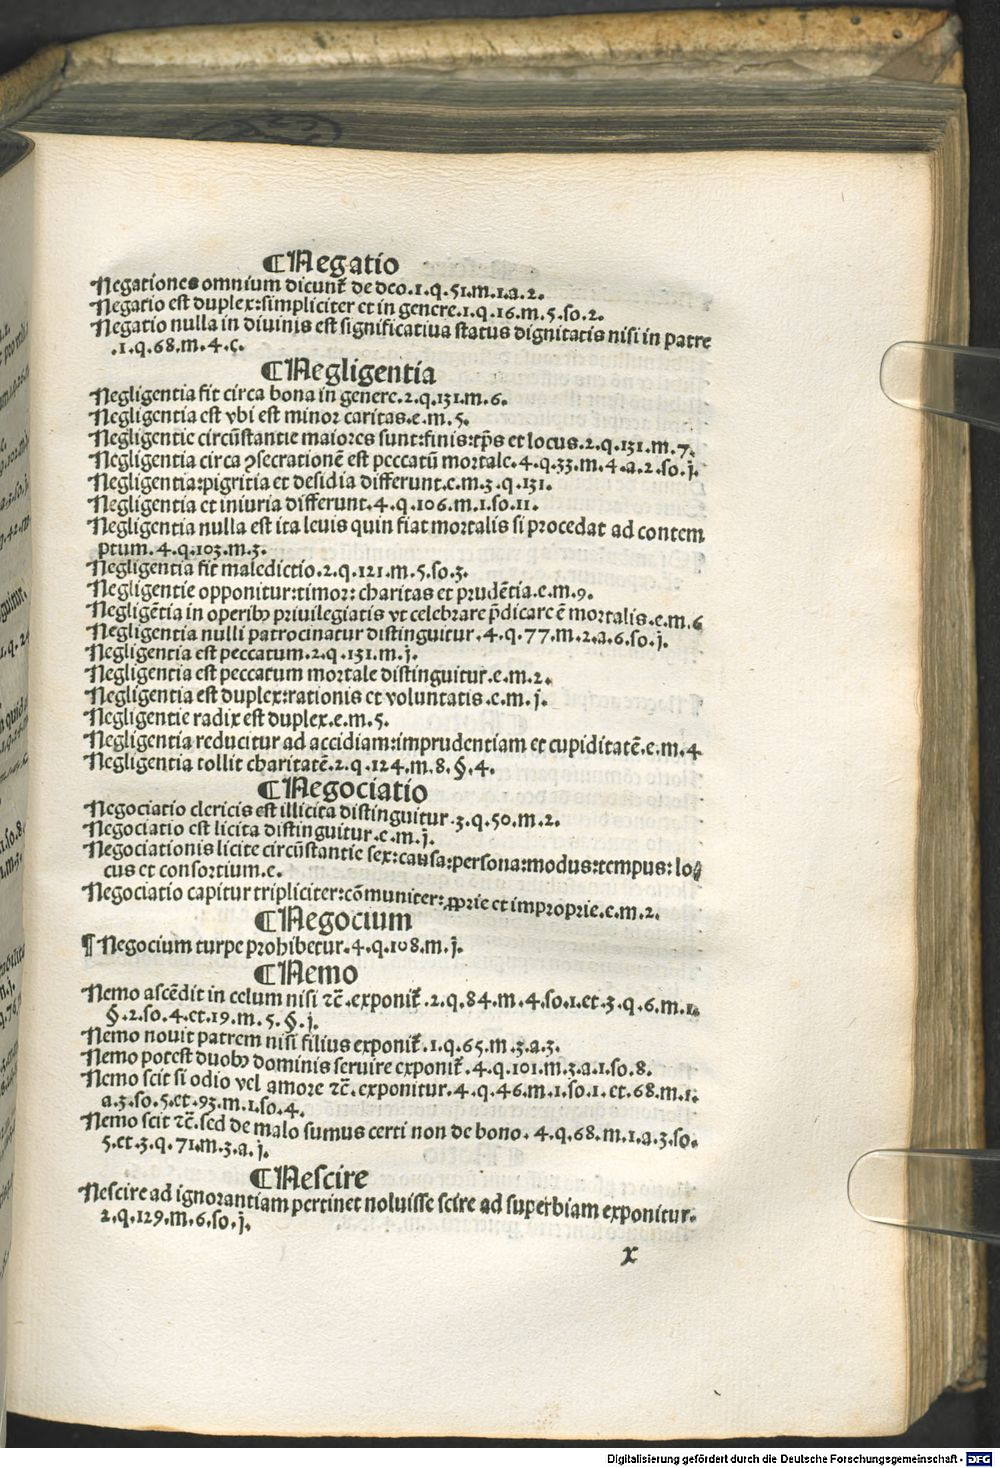 ¶Negatio
Negationes omnium dicunt᷑ de deo.1.q.51.m.1.a.2.
Negatio est duplex:simpliciter et in genere.1.q.16.m.5.so.2.
Negatio nulla in diuinis est significatiua status dignitatis nisi in patre
.1.q.68.m.4.c.
¶Negligentia
Negligentia fit circa bona in genere.2.q.131.m.6.
Negligentia est vbi est minor caritas.e.m.5.
Negligentie circūstantie maiores sunt:finis:tp̄s et locus.2.q.131.m.7.
Negligentia circa ꝯsecrationē est peccatū mortale.4.q.33.m.4.a.2.so.j.
Negligentia:pigritia et desidia differunt.e.m.3.q.131.
Negligentia et iniuria differunt.4.q.106.m.1.so.11.
Negligentia nulla est ita leuis quin fiat mortalis si procedat ad contem
ptum.4.q.103.m.3.
Negligentia fit maledictio.2.q.121.m.5.so.3.
Negligentie opponitur:timor:charitas et prudētia.e.m.9.
Negligētia in operibꝫ priuilegiatis vt celebrare p̄dicare ē mortalis.e.m.6
Negligentia nulli patrocinatur distinguitur.4.q.77.m.2.a.6.so.j.
Negligentia est peccatum.2.q.131.m.j.
Negligentia est peccatum mortale distinguitur.e.m.2.
Negligentia est duplex:rationis et voluntatis.e.m.j.
Negligentie radix est duplex.e.m.5.
Negligentia reducitur ad accidiam:imprudentiam et cupiditatē.e.m.4
Negligentia tollit charitatē.2.q.124.m.8.§.4.
¶Negociatio
Negociatio clericis est illicita distinguitur.3.q.50.m.2.
Negociatio est licita distinguitur.e.m.j.
Negociationis licite circūstantie sex:causa:persona:modus:tempus:lo
cus et consortium.e.
Negociatio capitur tripliciter:cōmuniter:ꝓprie et improprie.e.m.2.
¶Negocium
¶Negocium turpe prohibetur.4.q.108.m.j.
¶Nemo
Nemo ascēdit in celum nisi ⁊c̄.exponit᷑.2.q.84.m.4.so.1.et.3.q.6.m.1.
§.2.so.4.et.19.m.5.§.j.
Nemo nouit patrem nisi filius exponit᷑.1.q.65.m.3.a.3.
Nemo potest duobꝫ dominis seruire exponit᷑.4.q.101.m.3.a.1.so.8.
Nemo scit si odio vel amore ⁊c̄.exponitur.4.q.46.m.1.so.1.et.68.m.1.
a.3.so.5.et.93.m.1.so.4.
Nemo scit ⁊c̄.sed de malo sumus certi non de bono.4.q.68.m.1.a.3.so.
5.et.3.q.71.m.3.a.j.
¶Nescire
Nescire ad ignorantiam pertinet noluisse scire ad superbiam exponitur.
2.q.129.m.6.so.j.
x
Digitalisierung gefördert durch die Deutsche Forschungsgemeinschaft - DFG